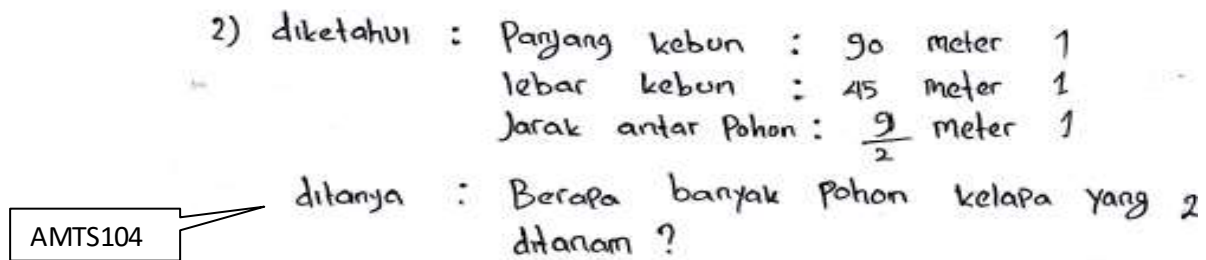 2) diketahui : Panjang kebun : 90 meter 1
lebar kebun : 45 meter 1
Jarak antar Pohon : 9/2 meter 1
ditanya : Berapa banyak Pohon kelapa yang 2
ditanam ?
AMTS104